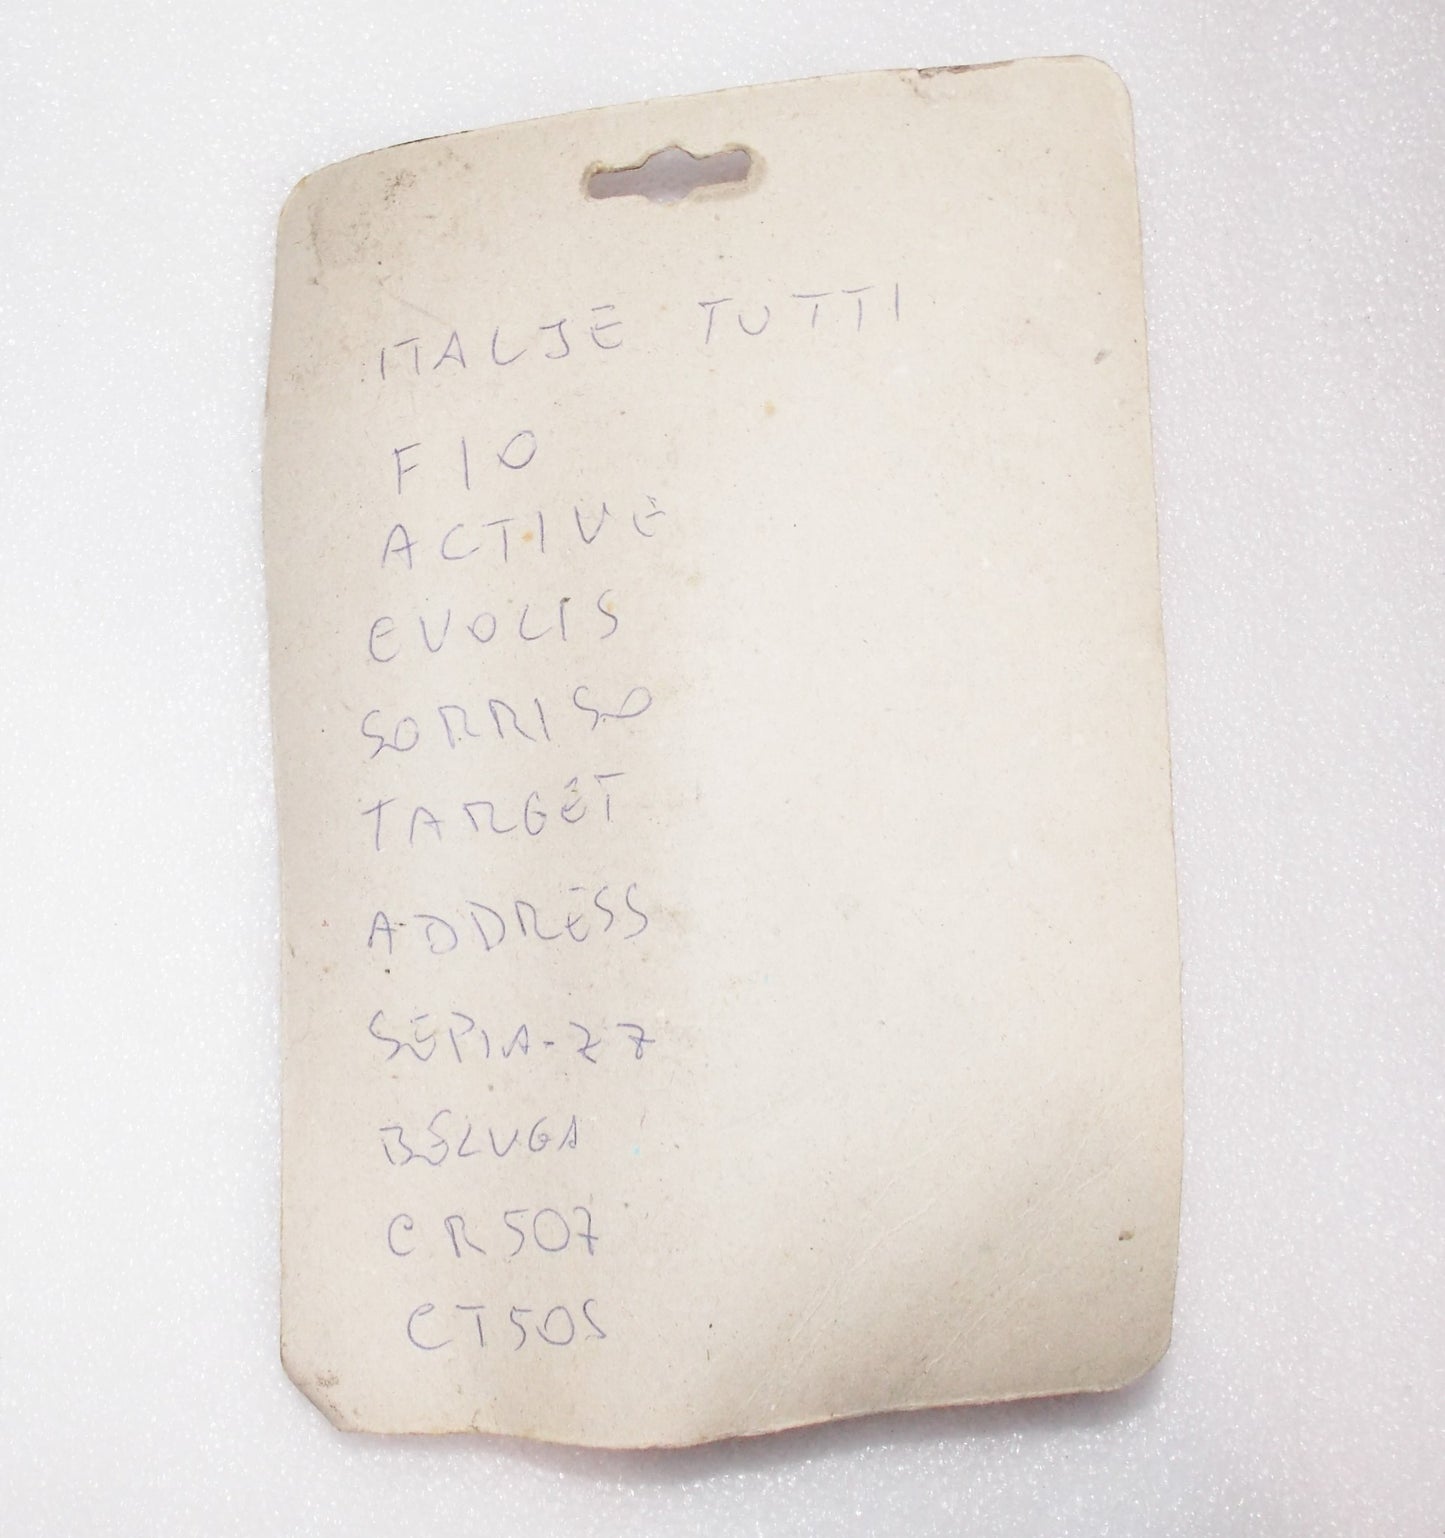 ITALJE TUTTI
FIO
ACTIVE
EVOLIS
SORRISO
TARGET
ADDRESS
SEPIA-ZZ
BELUGA
CR507
CT505